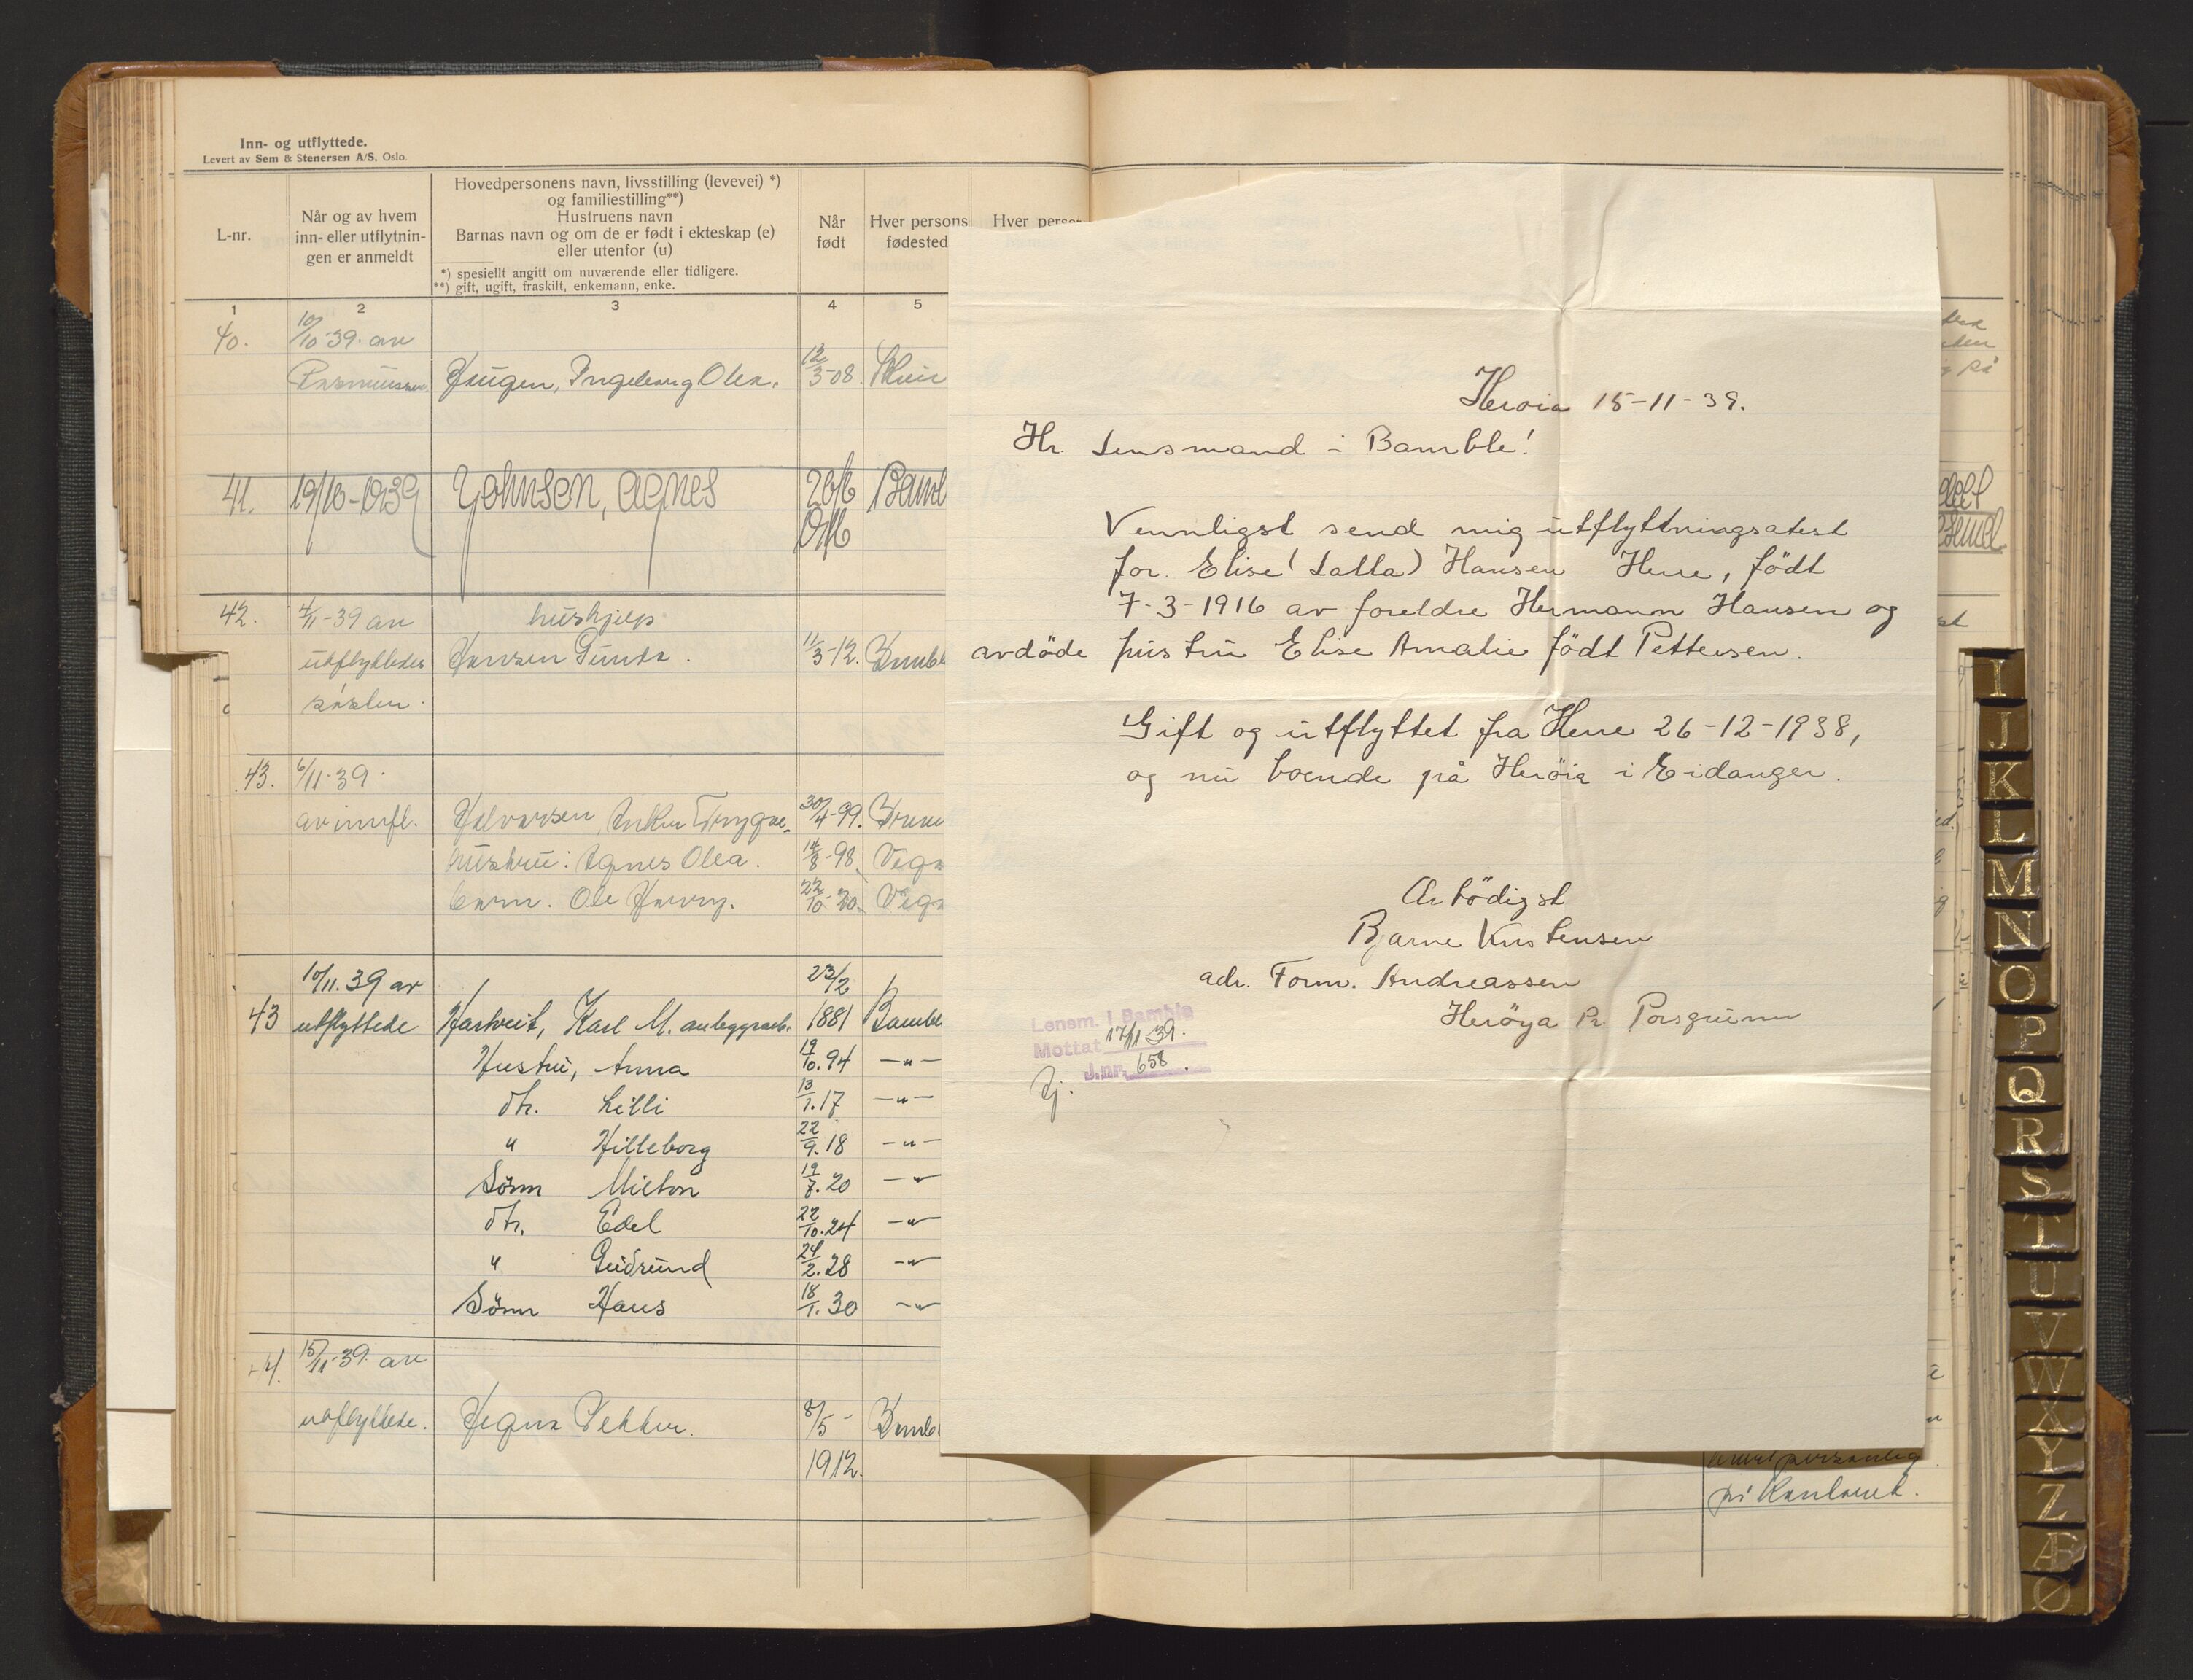 Inn- og utflyttede.
Levert av Sem & Stenersen A/S, Oslo.
L-nr.
Når og av hvem
inn- eller utflytnin-
gen er anmeldt
Hovedpersonens navn, livsstilling (levevei) *)
og familiestilling**)
Hustruens navn
Barnas navn og om de er født i ekteskap (e)
eller utenfor (u)
*) spesiellt angitt om nuværende eller tidligere.
**) gift, ugift, fraskilt, enkemann, enke.
Når
født
Hver persons
fødested
Hver person
1 2 3 4 5
40. 10/10-39. av
Rasmussen Haugen, Ingeborg Olea. 12/3-08.
41. 19/10-1939 Johnsen, Agnes 26/6 Bambl
42. 4/11-39 av hushjelp
utflyttedes Hansen Gunda. 11/3-12. Bamble
søster.
43. 6/11-39.
av innfl. Halvorsen, Anker Trygve. 30/4-99.
hustru: Agnes Olea. 14/8-98.
barn. Ole Harry. 22/10-20.
10/11.39 av 23/2
43 utflyttede Hartveit, Karl M. anleggsarb. 1881 Bamble
Hustru, Anna 19/10.94 -"-
dtr. Lilli 13/1.17 -"-
" Hilleborg 22/9.18 -"-
Sønn Milton 19/7.20 -"-
dtr. Edel 22/10.24 -"-
" Gudrund 24/2.28 -"-
Sønn Hans 18/1.30 -"-
44. 15/11-39. av
utflyttede. Hegna Petter. 8/5- Bamble
1912.
Herøia 15-11-39.
Hr. Lensmand i Bamble!
Vennligst send mig utflyttningsatest
for. Elise (Lalla) Hansen Herre, født
7-3-1916 av foreldre Hermann Hansen og
avdøde hustru Elise Amalie født Pettersen.
Gift og utflyttet fra Herre 26-12-1938,
og nu boende på Herøia i Eidanger.
Ærbødigst
Bjarne Kristensen
adr. Form. Andreassen
Herøya Pr. Porsgrunn
Lensm. i Bamble
Mottat 17/11 39.
J.nr. 658.
personlig
på Kontoret.
I
J
K
L
M
N
O
P
Q
R
S
T
U
V
W
X
Y
Z
Æ
Ø